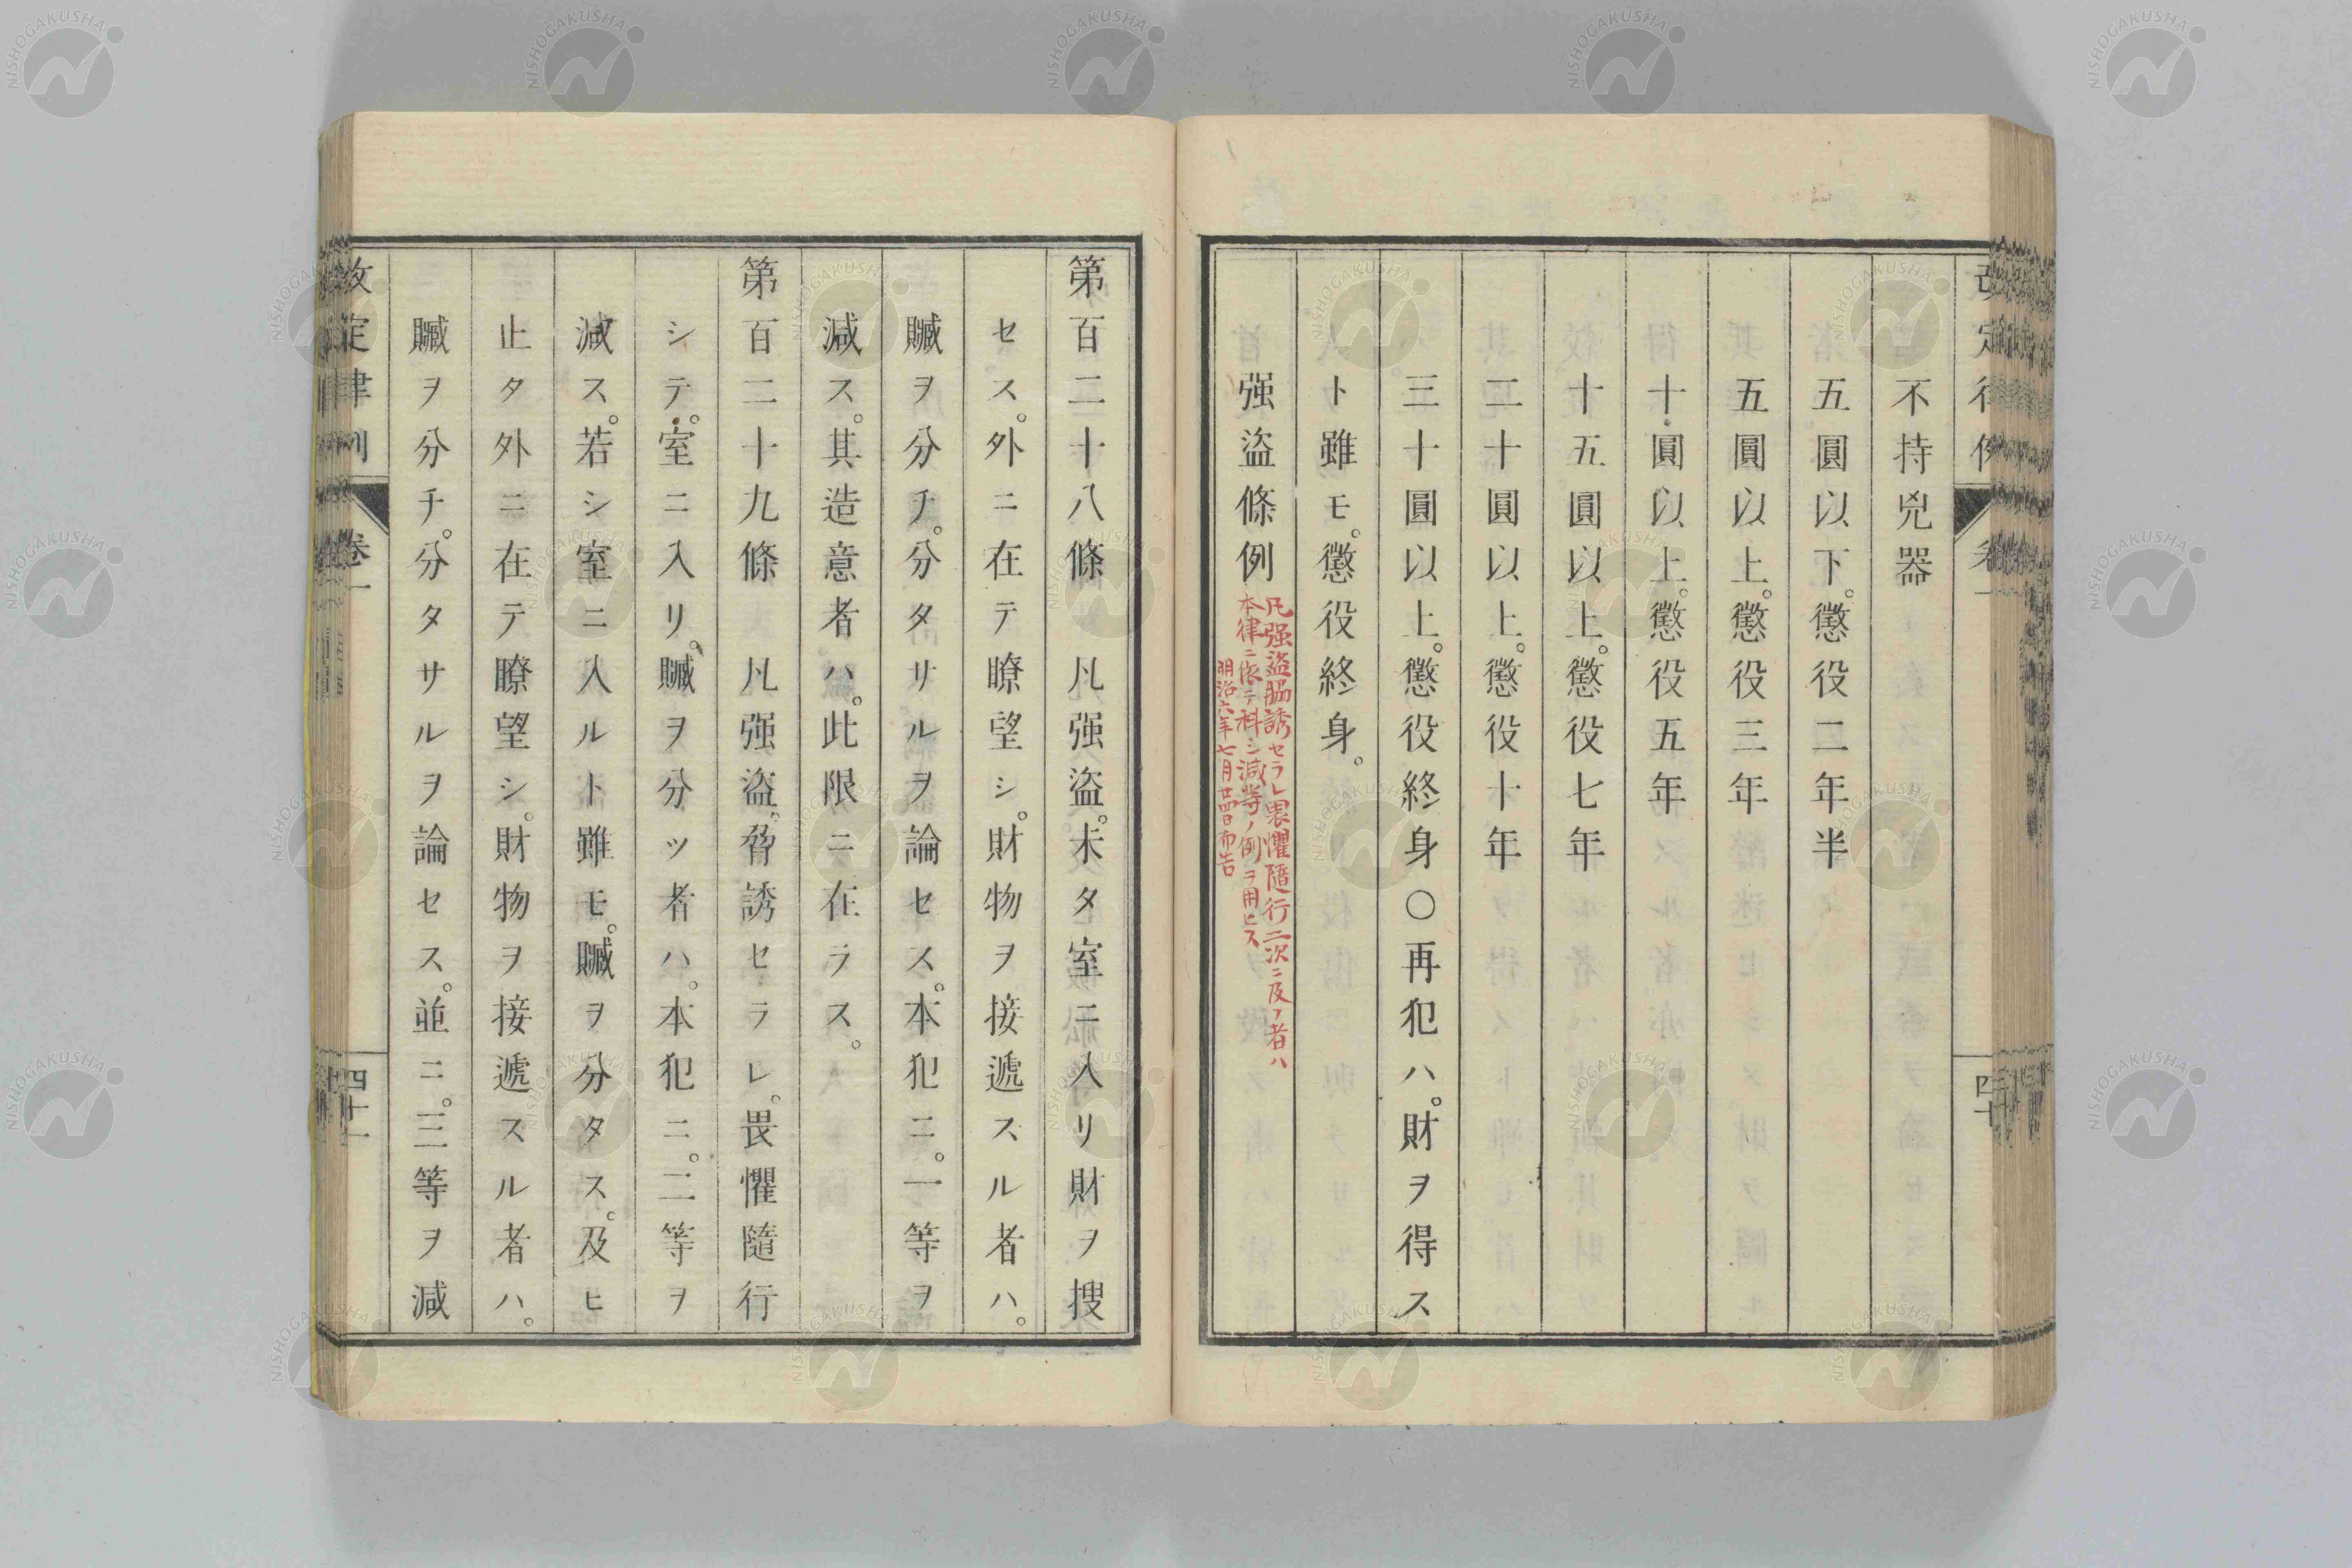 不持兇器
五圓以下。懲役二年半
五圓以上。懲役三年
十圓以上。懲役五年
十五圓以上。懲役七年
二十圓以上。懲役十年
三十圓以上。懲役終身〇再犯ハ。財ヲ得ス
ト雖モ。懲役終身。
强盜條例
凡强盜脇誘セラレ畏懼隨行二次ニ及フ者ハ
本律ニ依テ科シ減等ノ例ヲ用ヒス
明治六年七月廿四日布告
四十
第百二十八條 凡强盜。未タ室ニ入リ財ヲ搜
セス。外ニ在テ瞭望シ。財物ヲ接遞スル者ハ。
贓ヲ分チ。分タサルヲ論セス。本犯ニ。一等ヲ
減ス。其造意者ハ。此限ニ在ラス。
第百二十九條 凡强盜。脅誘セラレ。畏懼隨行
シテ。室ニ入リ。贓ヲ分ツ者ハ。本犯ニ。二等ヲ
減ス。若シ室ニ入ルト雖モ。贓ヲ分タス。及ヒ
止タ外ニ在テ瞭望シ。財物ヲ接遞スル者ハ。
贓ヲ分チ。分タサルヲ論セス。並ニ。三等ヲ減
改定律例 卷一 四十一
NISHOGAKUSHA